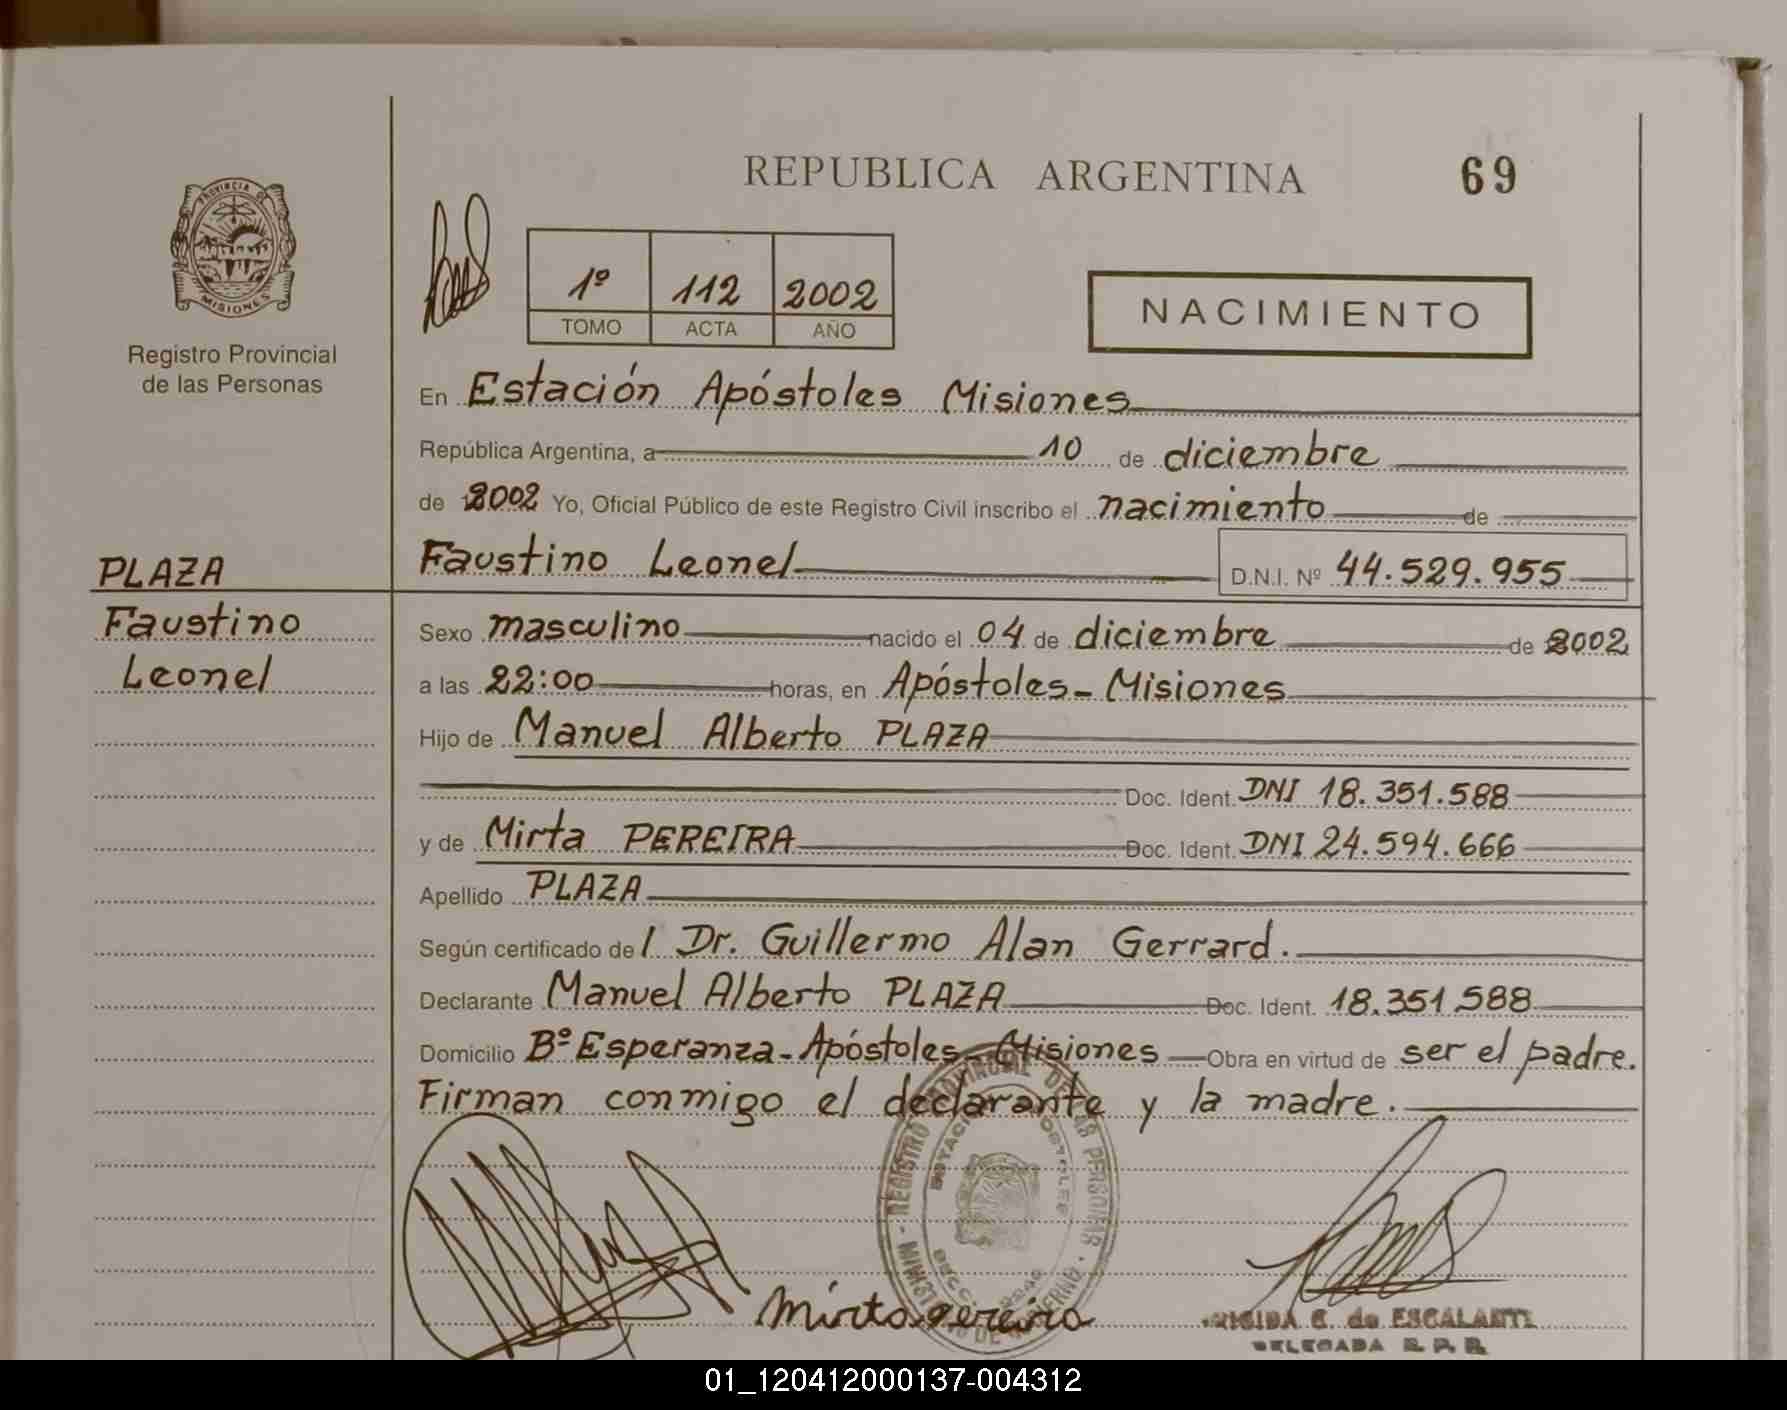 REPUBLICA ARGENTINA
69
PROVINCIA DE
MISIONES
Registro Provincial
de las Personas
1º 112 2002
TOMO ACTA AÑO
NACIMIENTO
En Estación Apóstoles Misiones
República Argentina, a 10 de diciembre
de 2002 Yo, Oficial Público de este Registro Civil inscribo el nacimiento de
Faustino Leonel D.N.I. Nº 44.529.955
PLAZA
Faustino
Leonel
Sexo masculino nacido el 04 de diciembre de 2002
a las 22:00 horas, en Apóstoles - Misiones
Hijo de Manuel Alberto PLAZA
Doc. Ident. DNI 18.351.588
y de Mirta PEREIRA Doc. Ident. DNI 24.594.666
Apellido PLAZA
Según certificado de l Dr. Guillermo Alan Gerrard.
Declarante Manuel Alberto PLAZA Doc. Ident. 18.351.588
Domicilio Bº Esperanza - Apóstoles - Misiones Obra en virtud de ser el padre.
Firman conmigo el declarante y la madre.
REGISTRO PROVINCIAL DE LAS PERSONAS
Mirta pereira
C. de ESCALANTE
DELEGADA R. P. P.
01_120412000137-004312